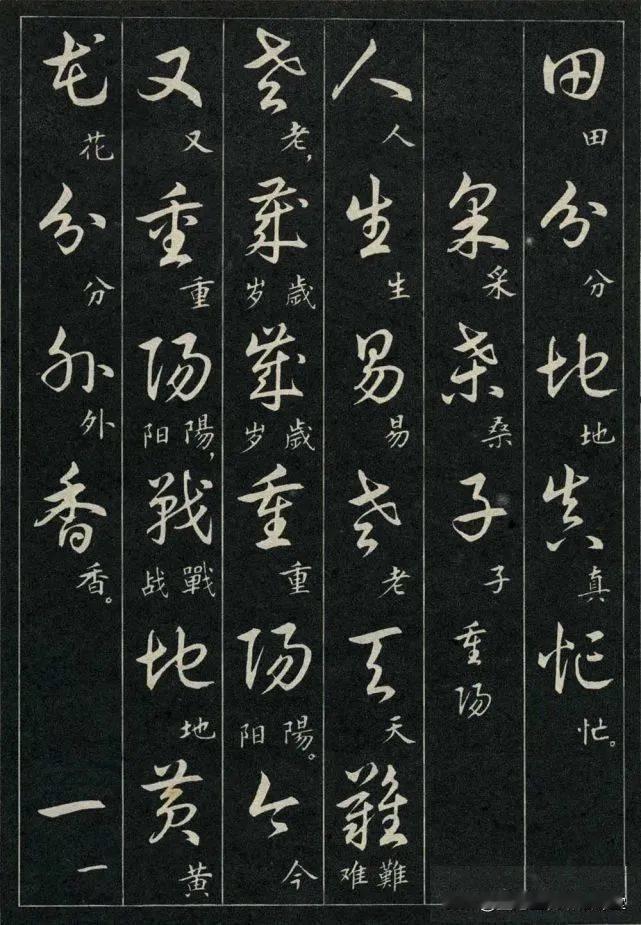 田分地真忙
田分地真忙。
采桑子 重陽
采桑子
人生易老天難
人生易老天難难
老歲歲重陽今
老，歲岁歲岁重陽阳。今
又重陽戰地黄
又重陽阳，戰战地黄
花分外香一
花分外香。一